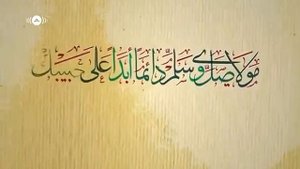 مولاي صل وسلم دائما أبدا على حبيبك